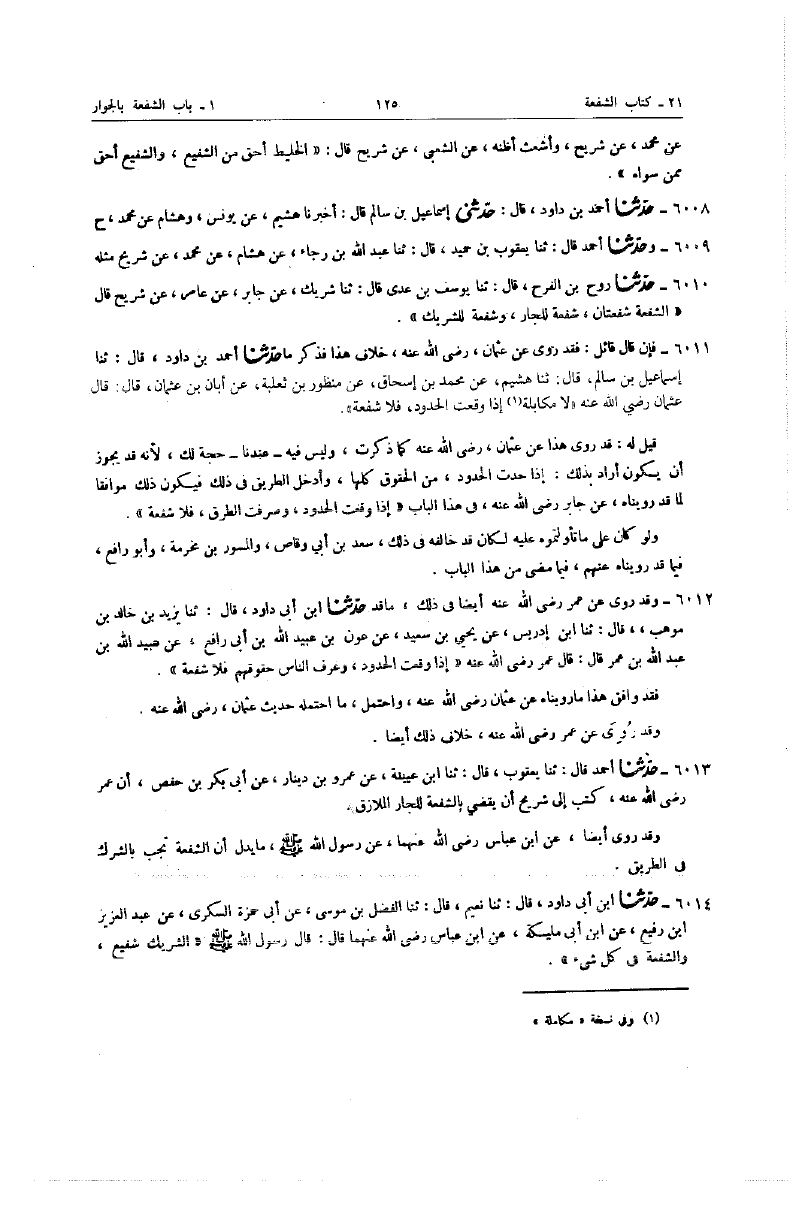 ٢١ ـ كتاب الشفعة ١٢٥ ١ ـ باب الشفعة بالجوار
عن محمد ، عن شريح ، وأشعث أظنه ، عن الشعبي ، عن شريح قال : « الخليط أحق من الشفيع ، والشفيع أحق
ممن سواه » .
٦٠٠٨ ـ حدّثنا أحمد بن داود ، قال : حدّثني إسماعيل بن سالم قال : أخبرنا هشيم ، عن يونس ، وهشام عن محمد ، ح
٦٠٠٩ ـ وحدّثنا أحمد قال : ثنا يعقوب بن حميد ، قال : ثنا عبد الله بن رجاء ، عن هشام ، عن محمد ، عن شريح مثله
٦٠١٠ ـ حدّثنا روح بن الفرح ، قال : ثنا يوسف بن عدى قال : ثنا شريك ، عن جابر ، عن عامر ، عن شريح قال
« الشفعة شفعتان ، شفعة للجار ، وشفعة للشريك » .
٦٠١١ ـ فإن قال قائل : فقد روى عن عثمان ، رضى الله عنه ، خلاف هذا فذكر ما حدّثنا أحمد بن داود ، قال : ثنا
إسماعيل بن سالم، قال: ثنا هشيم، عن محمد بن إسحاق، عن منظور بن ثعلبة، عن أبان بن عثمان، قال: قال
عثمان رضي الله عنه «لا مكابلة(١) إذا وقعت الحدود، فلا شفعة».
قيل له : قد روى هذا عن عثمان ، رضى الله عنه كما ذكرت ، وليس فيه ـ عندنا ـ حجة لك ، لأنه قد يجوز
أن يكون أراد بذلك : إذا حدت الحدود ، من الحقوق كلها ، وأدخل الطريق فى ذلك فيكون ذلك موافقا
لما قد رويناه ، عن جابر رضى الله عنه ، فى هذا الباب « إذا وقعت الحدود ، وصرفت الطرق ، فلا شفعة » .
ولو كان على ما تأولتموه عليه لكان قد خالفه فى ذلك ، سعد بن أبي وقاص ، والمسور بن مخرمة ، وأبو رافع ،
فيما قد رويناه عنهم ، فيما مضى من هذا الباب .
٦٠١٢ ـ وقد روى عن عمر رضى الله عنه أيضا فى ذلك ، ما قد حدّثنا ابن أبى داود ، قال : ثنا يزيد بن خالد بن
موهب ، ، قال : ثنا ابن إدريس ، عن يحيي بن سعيد ، عن عون بن عبيد الله بن أبى رافع ، عن عبيد الله بن
عبد الله بن عمر قال : قال عمر رضى الله عنه « إذا وقعت الحدود ، وعرف الناس حقوقهم فلا شفعة » .
فقد وافق هذا ما رويناه عن عثمان رضى الله عنه ، واحتمل ، ما احتمله حديث عثمان ، رضى الله عنه .
وقد رُوِىَ عن عمر رضى الله عنه ، خلاف ذلك أيضا .
٦٠١٣ ـ حدّثنا أحمد قال : ثنا يعقوب ، قال : ثنا ابن عيينة ، عن عمرو بن دينار ، عن أبى بكر بن حفص ، أن عمر
رضى الله عنه ، كتب إلى شريح أن يقضي بالشفعة للجار الملازق.
وقد روى أيضا ، عن ابن عباس رضى الله عنهما ، عن رسول الله ﷺ ، ما يدل أن الشفعة تجب بالشرك
فى الطريق .
٦٠١٤ ـ حدّثنا ابن أبى داود ، قال : ثنا نعيم ، قال : ثنا الفضل بن موسى ، عن أبى حمزة السكرى ، عن عبد العزيز
ابن رفيع ، عن ابن أبى مليكة ، عن ابن عباس رضى الله عنهما قال : قال رسول الله ﷺ « الشريك شفيع ،
والشفعة فى كل شىء » .
(١) وفى نسخة « مكاملة »